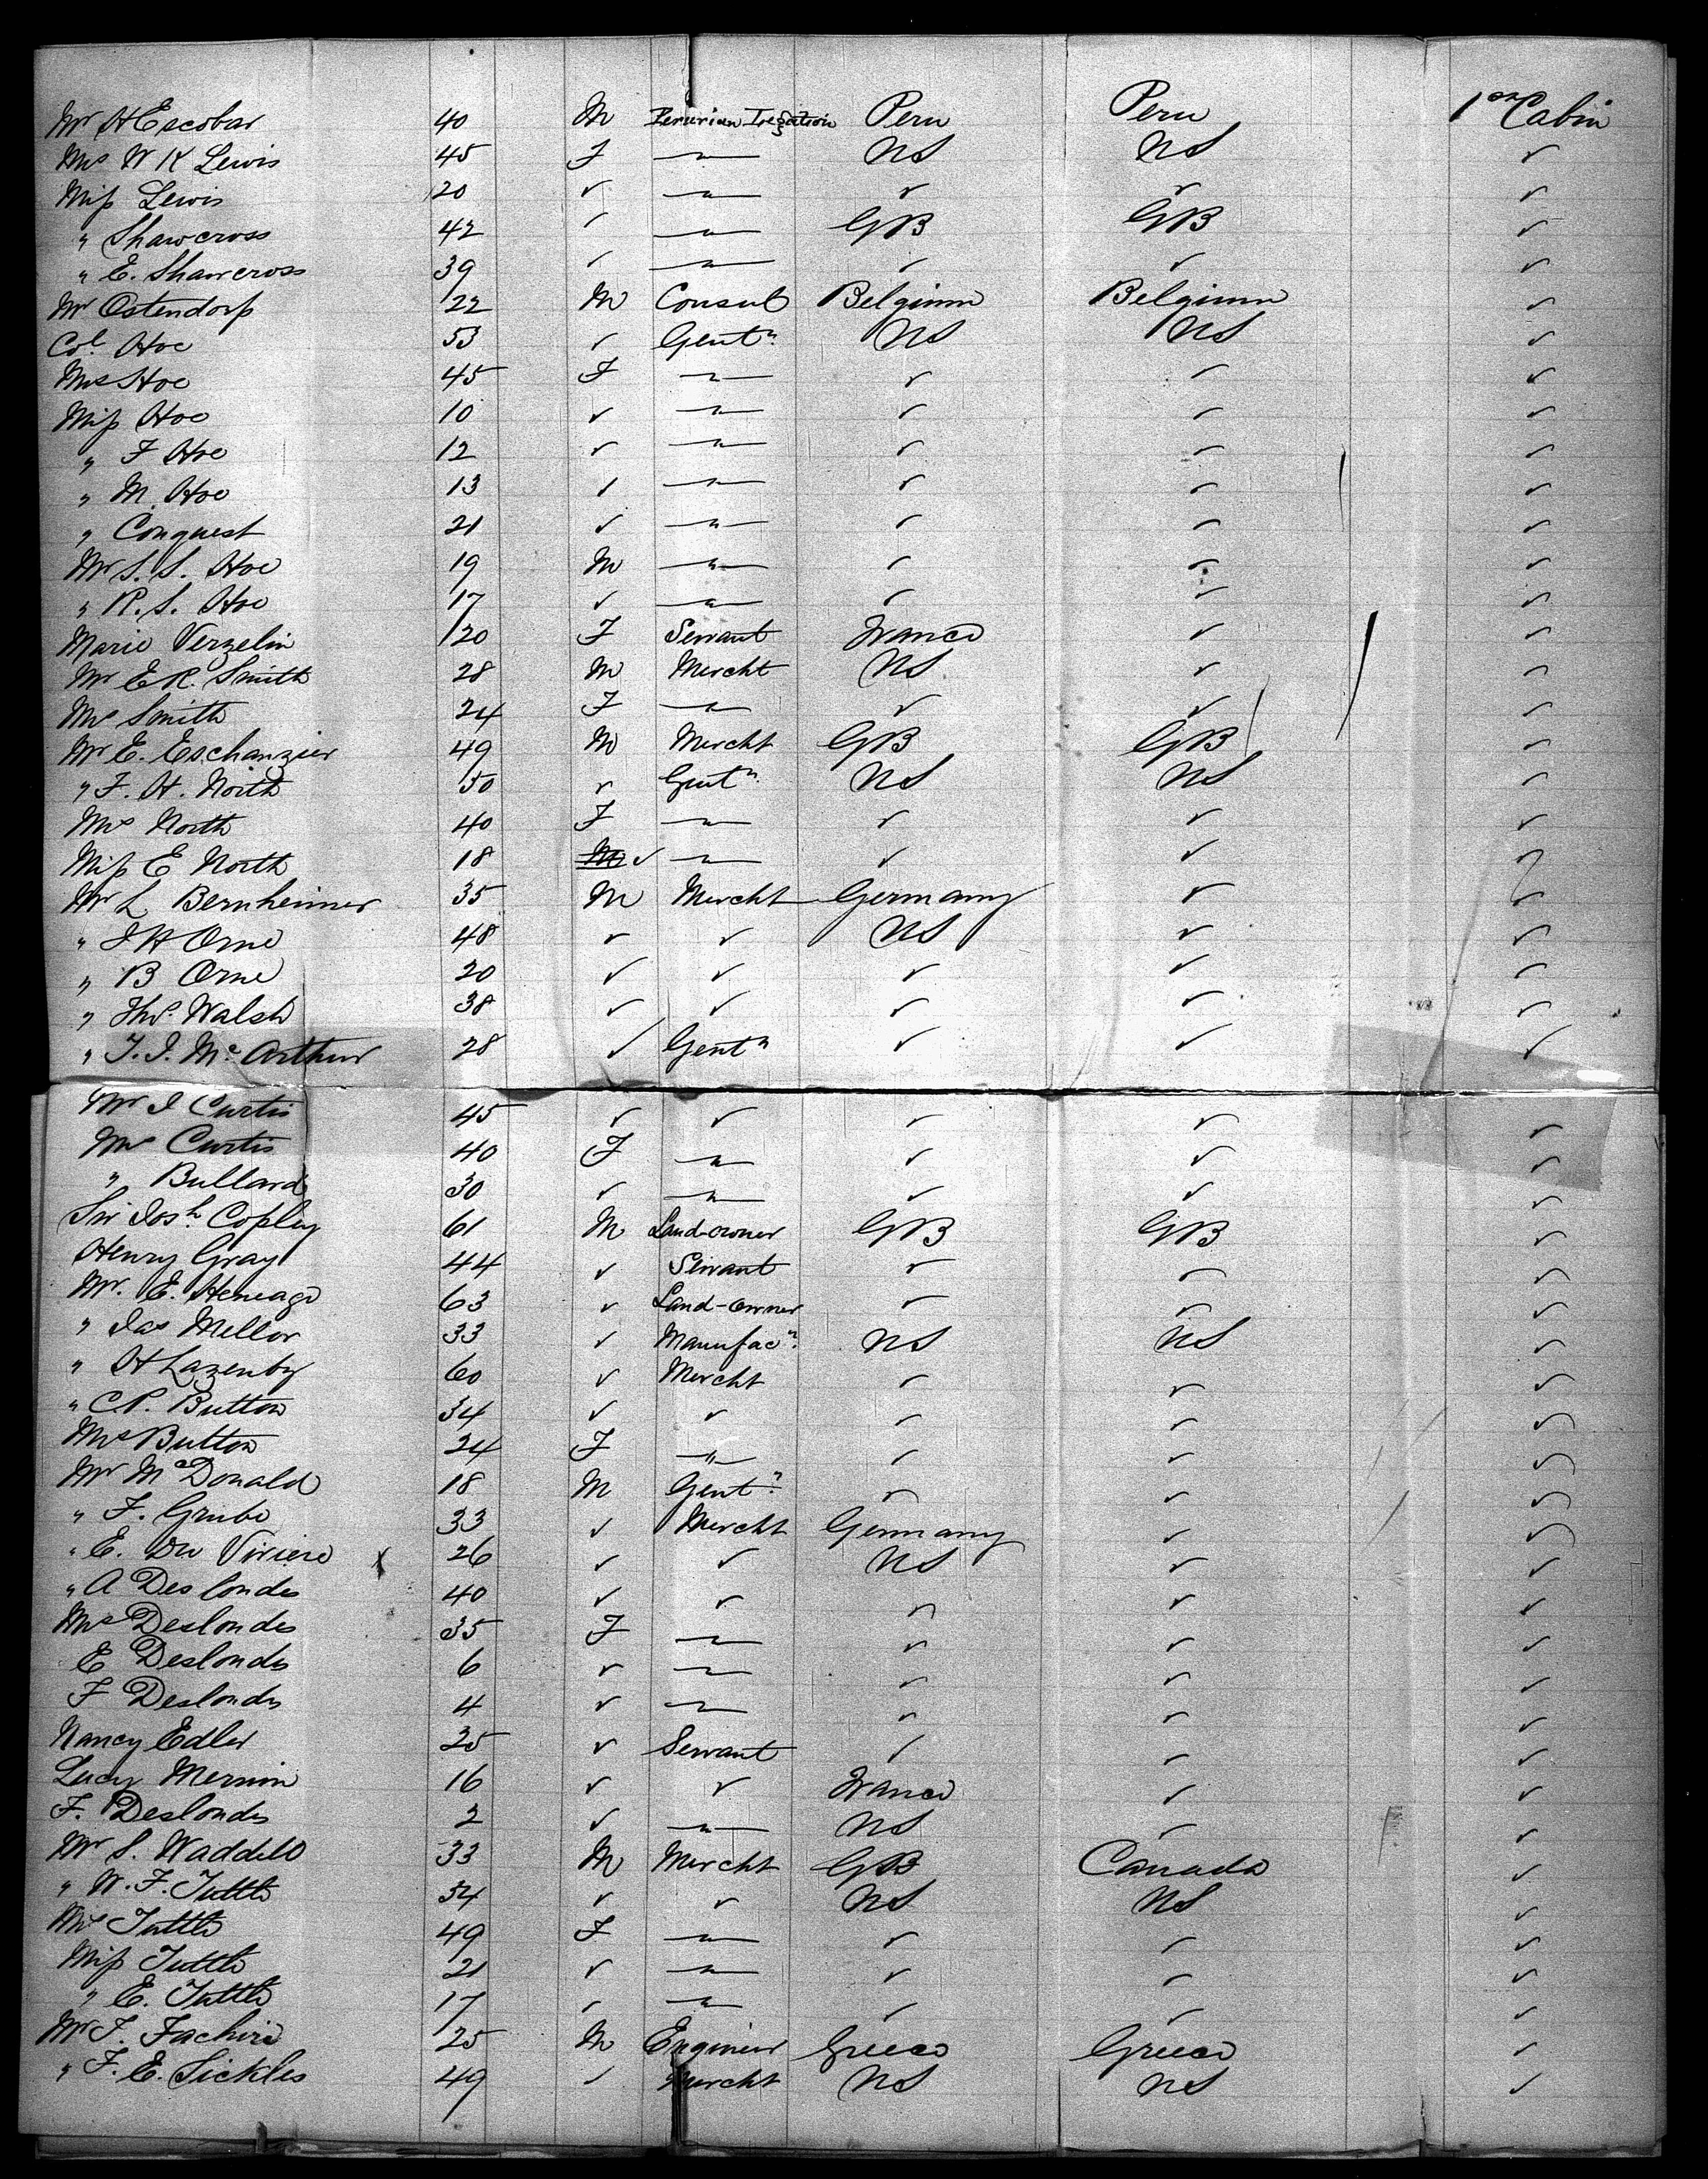 Mr H Escobar 40 M Peruvian Legation Peru Peru 1st Cabin
Mrs W K Lewis 45 F —"— US US ✓
Miss Lewis 20 ✓ —"— ✓ ✓ ✓
" Shawcross 42 ✓ —"— GB GB ✓
" E. Shawcross 39 ✓ —"— ✓ ✓ ✓
Mr Ostendorp 22 M Consul Belgium Belgium ✓
Col. Hoe 53 ✓ Gentn US US ✓
Mrs Hoe 45 F —"— ✓ ✓ ✓
Miss Hoe 10 ✓ —"— ✓ ✓ ✓
" F Hoe 12 ✓ —"— ✓ ✓ ✓
" M. Hoe 13 ✓ —"— ✓ ✓ ✓
" Conquest 21 ✓ —"— ✓ ✓ ✓
Mr S. S. Hoe 19 M —"— ✓ ✓ ✓
" R. S. Hoe 17 ✓ —"— ✓ ✓ ✓
Marie Verzelin 20 F Servant France ✓ ✓
Mr E R. Smith 28 M Mercht US ✓ ✓
Mrs Smith 24 F —"— ✓ ✓ ✓
Mr E. Eschanzier 49 M Mercht GB GB ✓
" F. H. North 50 ✓ Gentn US US ✓
Mrs North 40 F —"— ✓ ✓ ✓
Miss E North 18 ✓ —"— ✓ ✓ ✓
Mr L Bernheimer 35 M Mercht Germany ✓ ✓
" J H Orne 48 ✓ ✓ US ✓ ✓
" B Orne 20 ✓ ✓ ✓ ✓ ✓
" Thos. Walsh 38 ✓ ✓ ✓ ✓ ✓
" T. J. McArthur 28 ✓ Gentn ✓ ✓ ✓
Mr J Curtis 45 ✓ ✓ ✓ ✓ ✓
Mrs Curtis 40 F —"— ✓ ✓ ✓
" Bullard 30 ✓ —"— ✓ ✓ ✓
Sir Josh Copley 61 M Land-owner GB GB ✓
Henry Gray 44 ✓ Servant ✓ ✓ ✓
Mr. E. Heneage 63 ✓ Land-owner ✓ ✓ ✓
" Jas Mellor 33 ✓ Manufacr. US US ✓
" H Lazenby 60 ✓ Mercht ✓ ✓ ✓
" C. P. Button 34 ✓ ✓ ✓ ✓ ✓
Mrs Button 24 F —"— ✓ ✓ ✓
Mr McDonald 18 M Gentn ✓ ✓ ✓
" F. Grube 33 ✓ Mercht Germany ✓ ✓
" E. Du Viviere x 26 ✓ ✓ US ✓ ✓
" A Deslondes 40 ✓ ✓ ✓ ✓ ✓
Mrs Deslondes 35 F —"— ✓ ✓ ✓
E Deslondes 6 ✓ —"— ✓ ✓ ✓
F Deslondes 4 ✓ —"— ✓ ✓ ✓
Nancy Edler 25 ✓ Servant ✓ ✓ ✓
Lucy 16 ✓ ✓ France ✓ ✓
F. Deslondes 2 ✓ —"— US ✓ ✓
Mr S. Waddell 33 M Mercht GB Canada ✓
" W. F. Tuttle 54 ✓ ✓ US US ✓
Mrs Tuttle 49 F —"— ✓ ✓ ✓
Miss Tuttle 21 ✓ —"— ✓ ✓ ✓
" E. Tuttle 17 ✓ —"— ✓ ✓ ✓
Mr T. Fachiri 25 M Engineer Greece Greece ✓
" F. E. Sickles 49 ✓ Mercht US US ✓